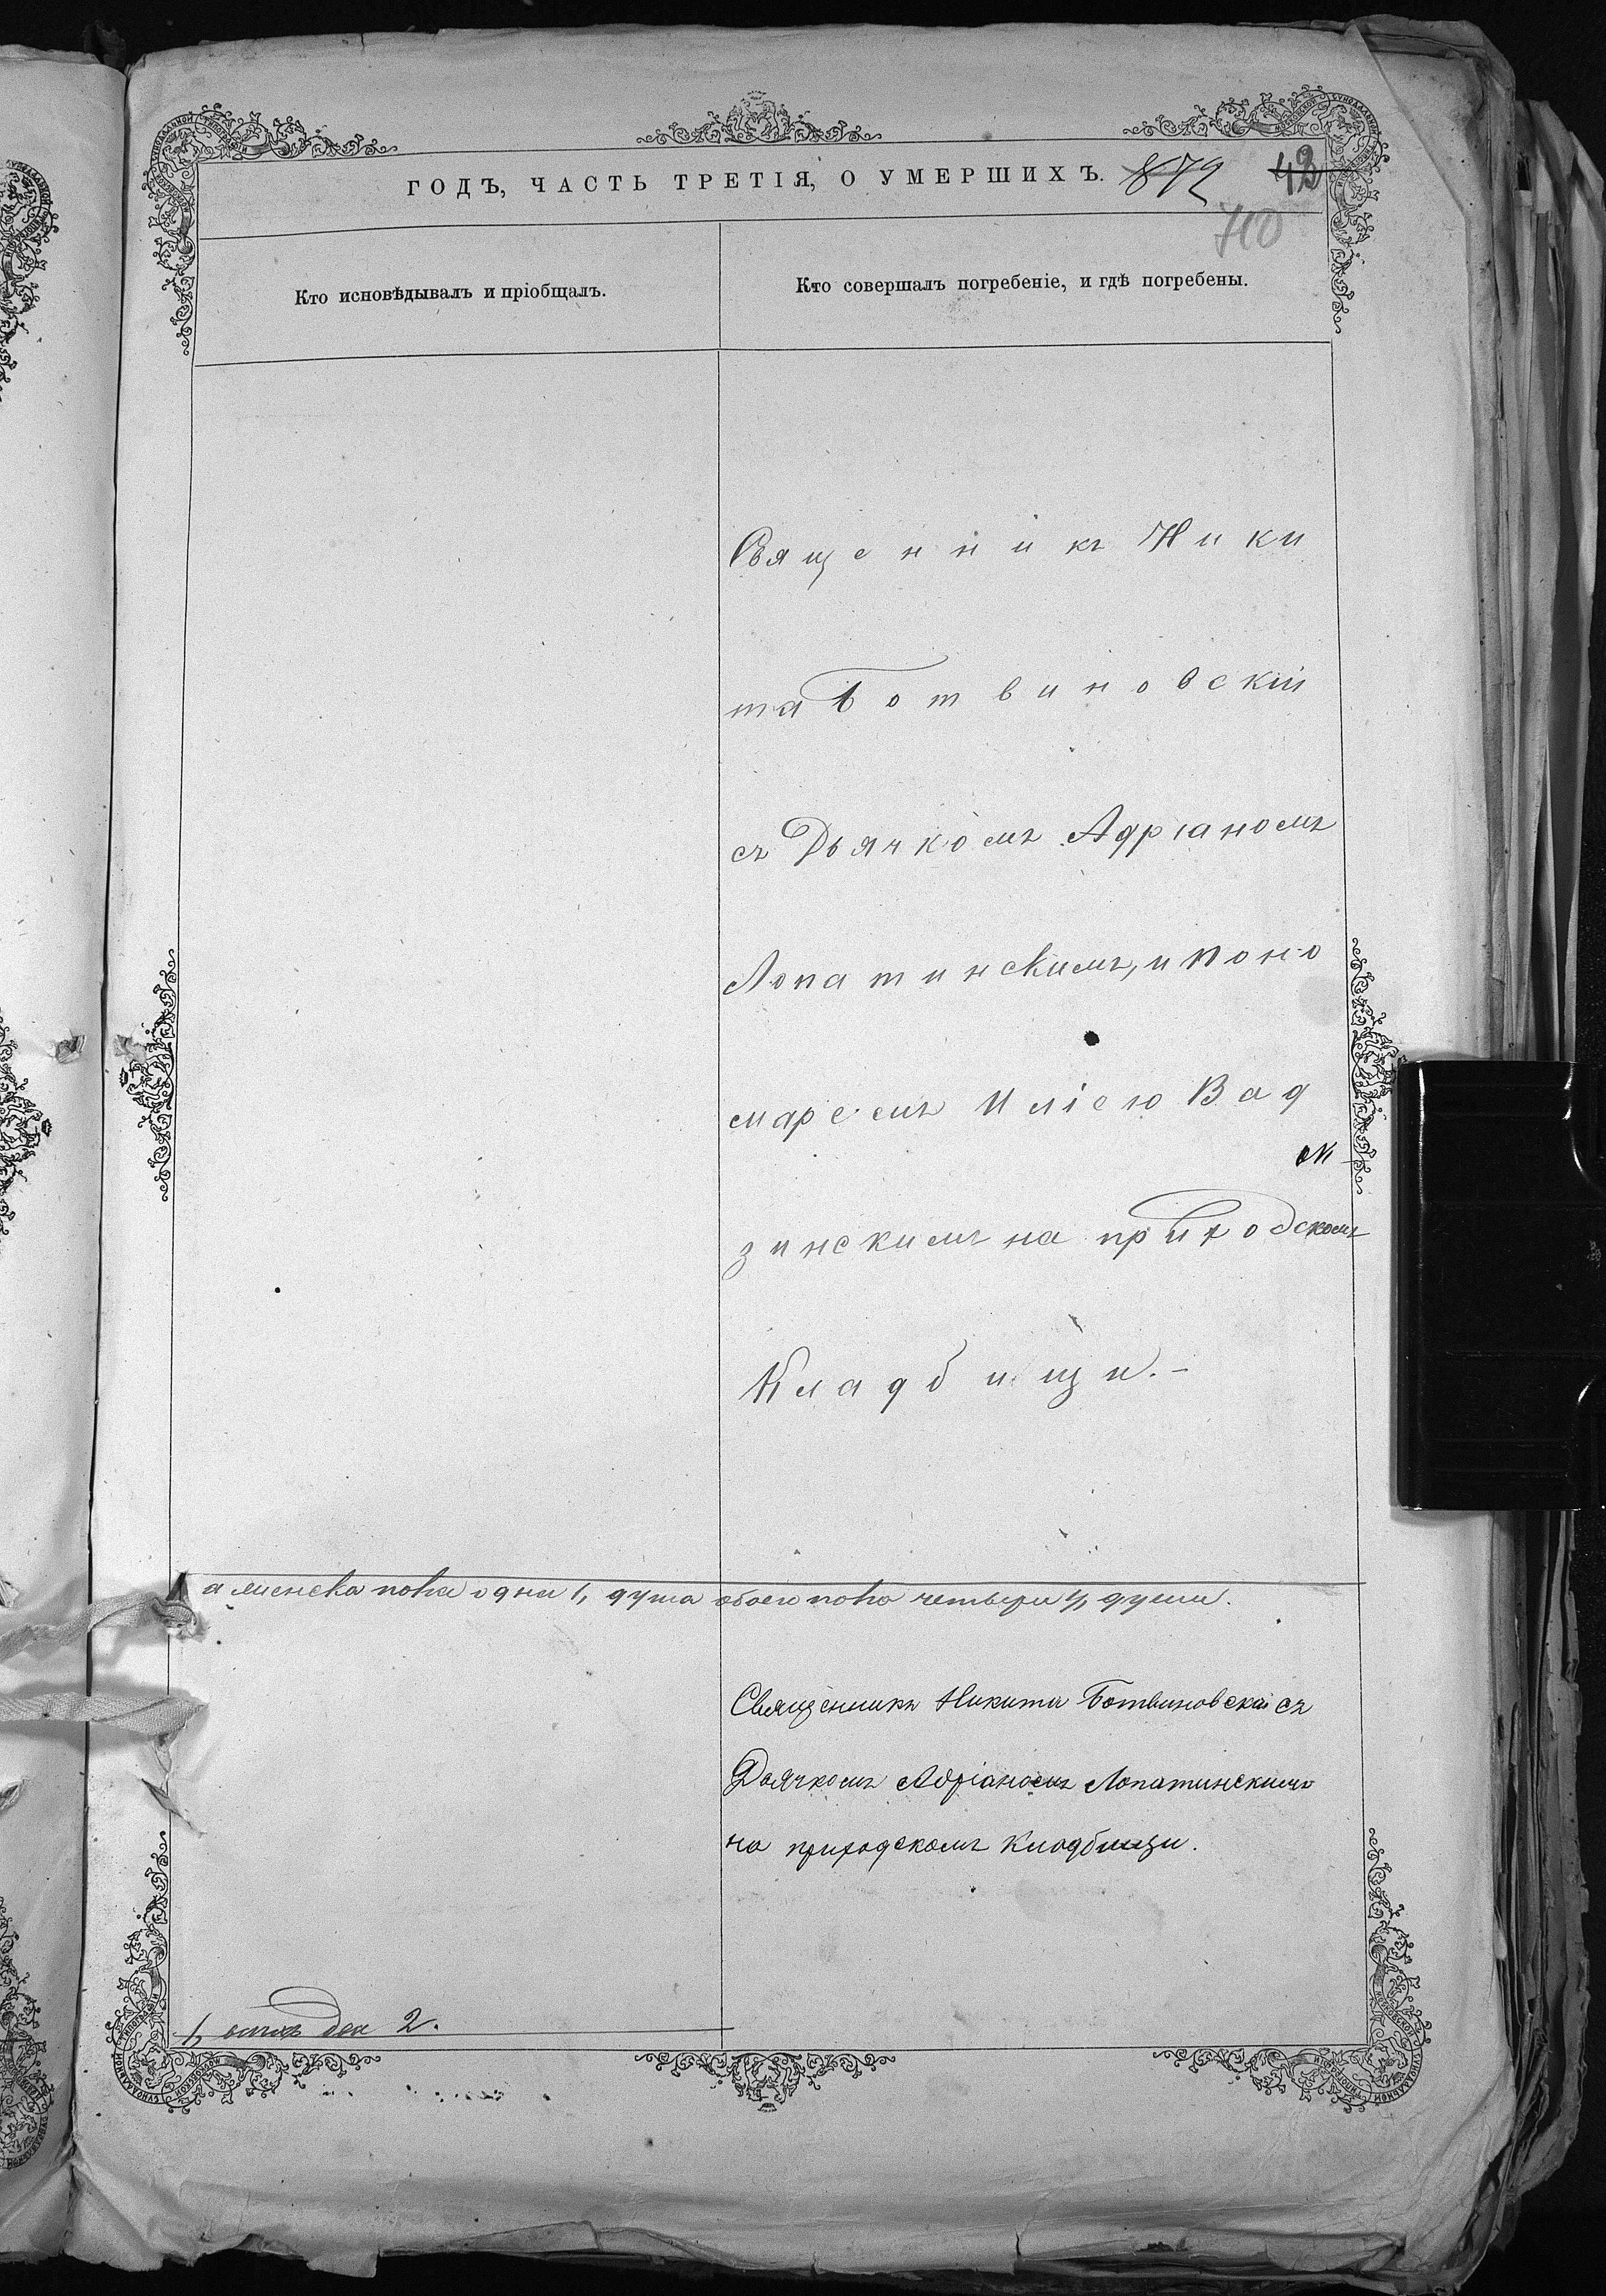 ГОДЪ, ЧАСТЬ ТРЕТІЯ, О УМЕРШИХЪ. 872 42
710
Кто исповѣдывалъ и пріобщалъ.
Кто совершалъ погребеніе, и гдѣ погребены.
Священникъ Ники
та Ботвиновскій
съ Дьячкомъ Адріаномъ
Лопатинскимъ, и Поно
маремъ Иліею Вад
зинскимъ на приходскомъ
Кладбищи. -
а женска пола одна 1, душа обоего пола четыри 4, души.
Священникъ Никита Ботвиновскій съ
Дьячкомъ Адріаномъ Лопатинскимъ
на приходскомъ Кладбищи.
1, два 2.